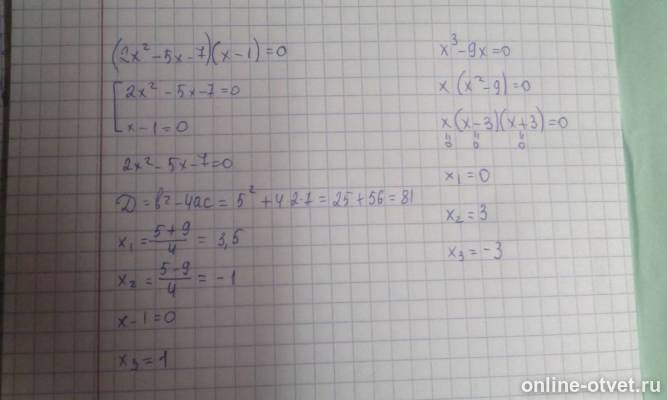 (2x² - 5x - 7)(x - 1) = 0
[ 2x² - 5x - 7 = 0
x - 1 = 0
2x² - 5x - 7 = 0
D = b² - 4ac = 5² + 4·2·7 = 25 + 56 = 81
x₁ = (5 + 9)/4 = 3,5
x₂ = (5 - 9)/4 = -1
x - 1 = 0
x₃ = 1
x³ - 9x = 0
x(x² - 9) = 0
x(x - 3)(x + 3) = 0
" " "
0 0 0
x₁ = 0
x₂ = 3
x₃ = -3
online-otvet.ru